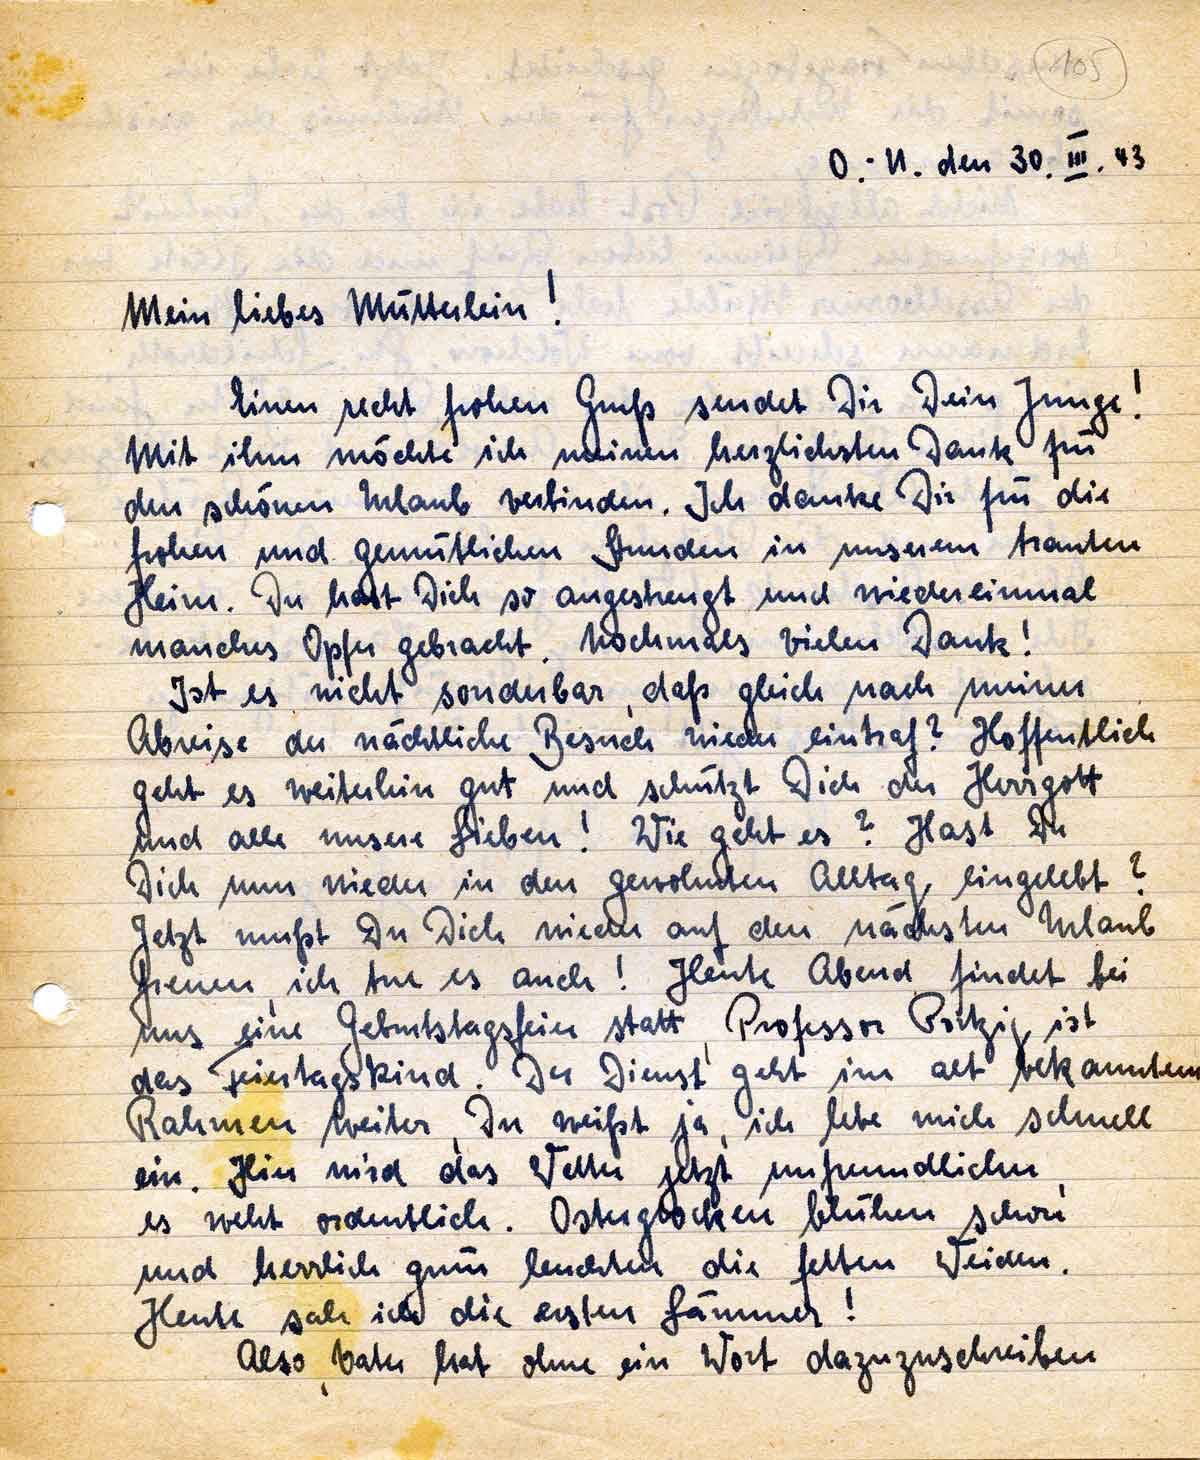 105
O.-U. den 30. III. 43
Mein liebes Mütterlein!
Einen recht frohen Gruß sendet Dir Dein Junge!
Mit ihm möchte ich meinen herzlichsten Dank für
den schönen Urlaub verbinden. Ich danke Dir für die
frohen und gemütlichen Stunden in unserem trauten
Heim. Du hast Dich so angestrengt und wiedereinmal
manches Opfer gebracht. Nochmals vielen Dank!
Ist es nicht sonderbar, daß gleich nach meiner
Abreise der nächtliche Besuch wieder eintraf? Hoffentlich
geht es weiterhin gut und schützt Dich der Herrgott
und alle unsere Lieben! Wie geht es? Hast Du
Dich nun wieder in den gewohnten Alltag eingelebt?
Jetzt mußt Du Dich wieder auf den nächsten Urlaub
freuen, ich tue es auch! Heute Abend findet bei
uns eine Geburtstagsfeier statt, Professor Portzig ist
das Feiertagskind. Der Dienst geht im alt bekannten
Rahmen weiter, Du weißt ja, ich lebe mich schnell
ein. Hier wird das Wetter jetzt unfreundlicher,
es weht ordentlich. Osterglocken blühen schon
und herrlich grün leuchten die fetten Weiden.
Heute sah ich die ersten Lämmer!
Also, Vater hat ohne ein Wort dazuzuschreiben